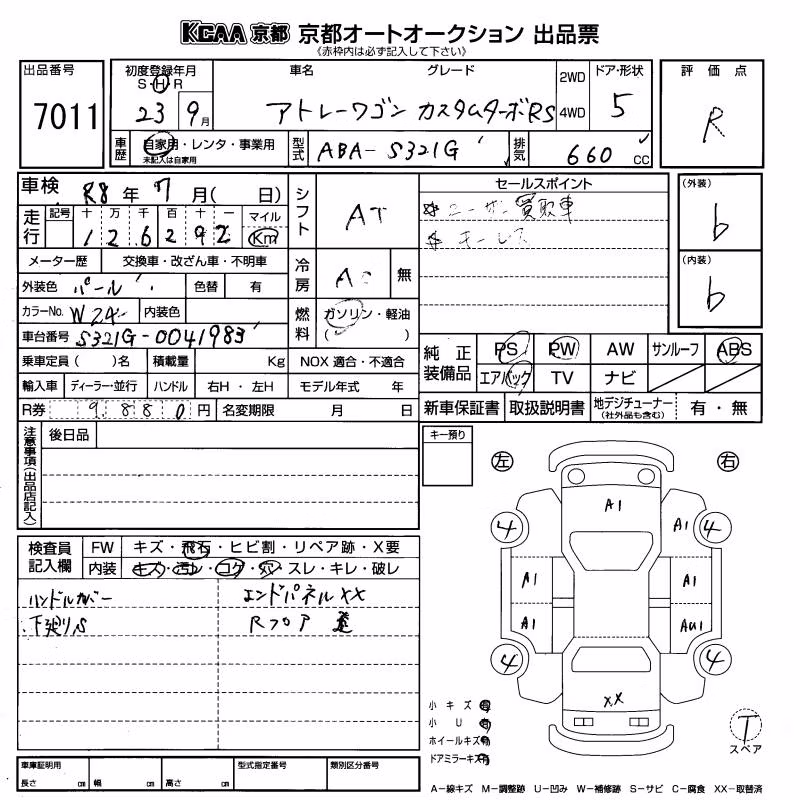 KCAA 京都 京都オートオークション 出品票
《赤枠内は必ず記入して下さい》
出品番号 7011
初度登録年月 S・H・R 23 9月
車名 グレード アトレーワゴン カスタムターボRS
2WD 4WD
ドア・形状 5
評価点 R
車歴 自家用・レンタ・事業用 未記入は自家用
型式 ABA-S321G
排気 660 cc
車検 R8年 7月( 日)
走行 記号 十 万 千 百 十 一 マイル
126292 Km
シフト AT
セールスポイント
☆ ユーザー買取車
☆ キーレス
(外装) b
(内装) b
メーター歴 交換車・改ざん車・不明車
冷房 AC 無
外装色 パール 色替 有
カラーNo. W24 内装色
燃料 ガソリン・軽油 ( )
車台番号 S321G-0041983
乗車定員 ( )名 積載量 Kg NOX 適合・不適合
輸入車 ディーラー・並行 ハンドル 右H・左H モデル年式 年
R券 9,880円 名変期限 月 日
純正装備品 PS PW AW サンルーフ ABS
エアバック TV ナビ
新車保証書 取扱説明書 地デジチューナー (社外品も含む) 有・無
注意事項(出品店記入) 後日品
キー預り
左 右
検査員記入欄 FW キズ・飛石・ヒビ割・リペア跡・X要
内装 キズ・汚レ・コゲ・穴・スレ・キレ・破レ
ハンドルカバー エンドパネルXX
下廻りS Rフロア
A1
4 A1 4
A1 A1
A1 AU1
4 4
XX
小キズ 有
小U 有
ホイールキズ 有
ドアミラーキズ 有
T
スペア
車庫証明用 型式指定番号 類別区分番号
長さ cm 幅 cm 高さ cm
A-線キズ M-調整跡 U-凹み W-補修跡 S-サビ C-腐食 XX-取替済